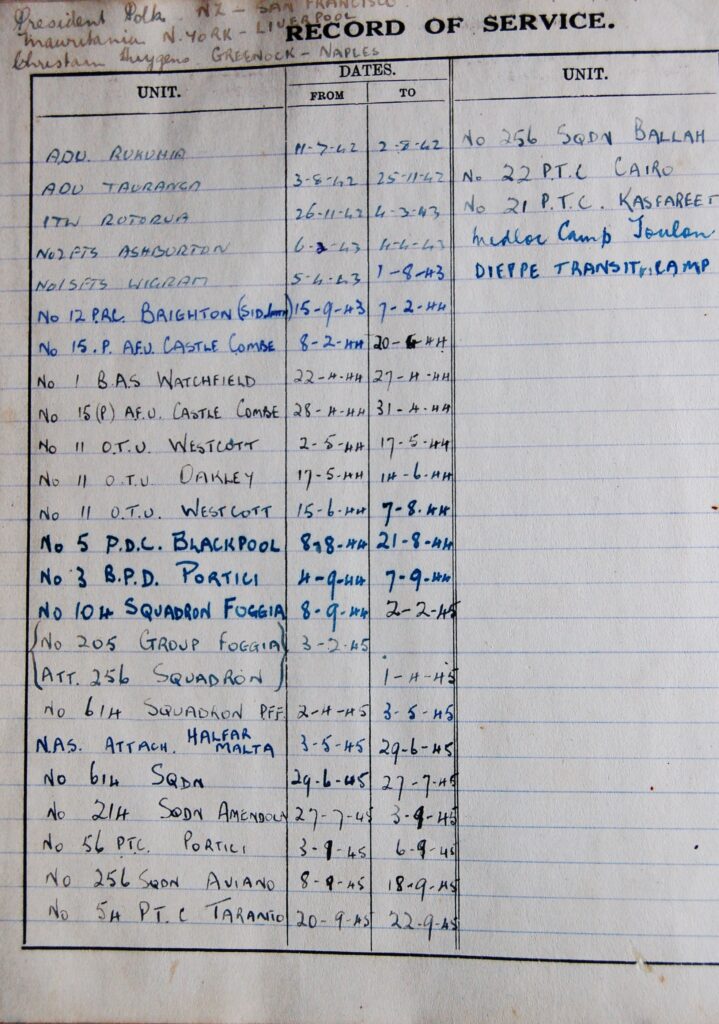 President Polk. NZ - SAN FRANCISCO.
Mauritania N.YORK - LIVERPOOL
Christian Huygens GREENOCK - NAPLES
RECORD OF SERVICE.
UNIT. DATES. FROM TO UNIT.
ADU. RUKUHIA 11-7-42 2-8-42
ADU TAURANGA 3-8-42 25-11-42
ITW ROTORUA 26-11-42 4-3-43
No 2 FTS ASHBURTON 43 4-4-43
No 1 SFTS WIGRAM 5-4-43 1-8-43
No 12 P.R.C. BRIGHTON 15-9-43 7-2-44
No 15.P. A.F.U. CASTLE COMBE 8-2-44 44
No 1 B.A.S WATCHFIELD 22-4-44 27-4-44
No 15(P) AF.U. CASTLE COMBE 28-4-44 31-4-44
No 11 O.T.U. WESTCOTT 2-5-44 17-5-44
No 11 O.T.U. OAKLEY 17-5-44 14-6-44
No 11 O.T.U. WESTCOTT 15-6-44 7-8-44
No 5 P.D.C. BLACKPOOL 8-8-44 21-8-44
No 3 B.P.D. PORTICI 4-9-44 7-9-44
No 104 SQUADRON FOGGIA 8-9-44 2-2-45
No 205 GROUP FOGGIA 3-2-45
ATT. 256 SQUADRON 1-4-45
No 614 SQUADRON PFF. 2-4-45 3-5-45
N.A.S. ATTACH. HALFAR MALTA 3-5-45 29-6-45
No 614 SQDN 29-6-45 27-7-45
No 214 SQDN AMENDOLA 27-7-45 3-9-45
No 56 PTC. PORTICI 3-9-45 6-9-45
No 256 SQDN AVIANO 8-9-45 18-9-45
No 54 P.T.C TARANTO 20-9-45 22-9-45
No 256 SQDN BALLAH
No 22 P.T.C CAIRO
No 21 P.T.C. KASFAREET
Medloc Camp Toulon
DIEPPE TRANSIT CAMP